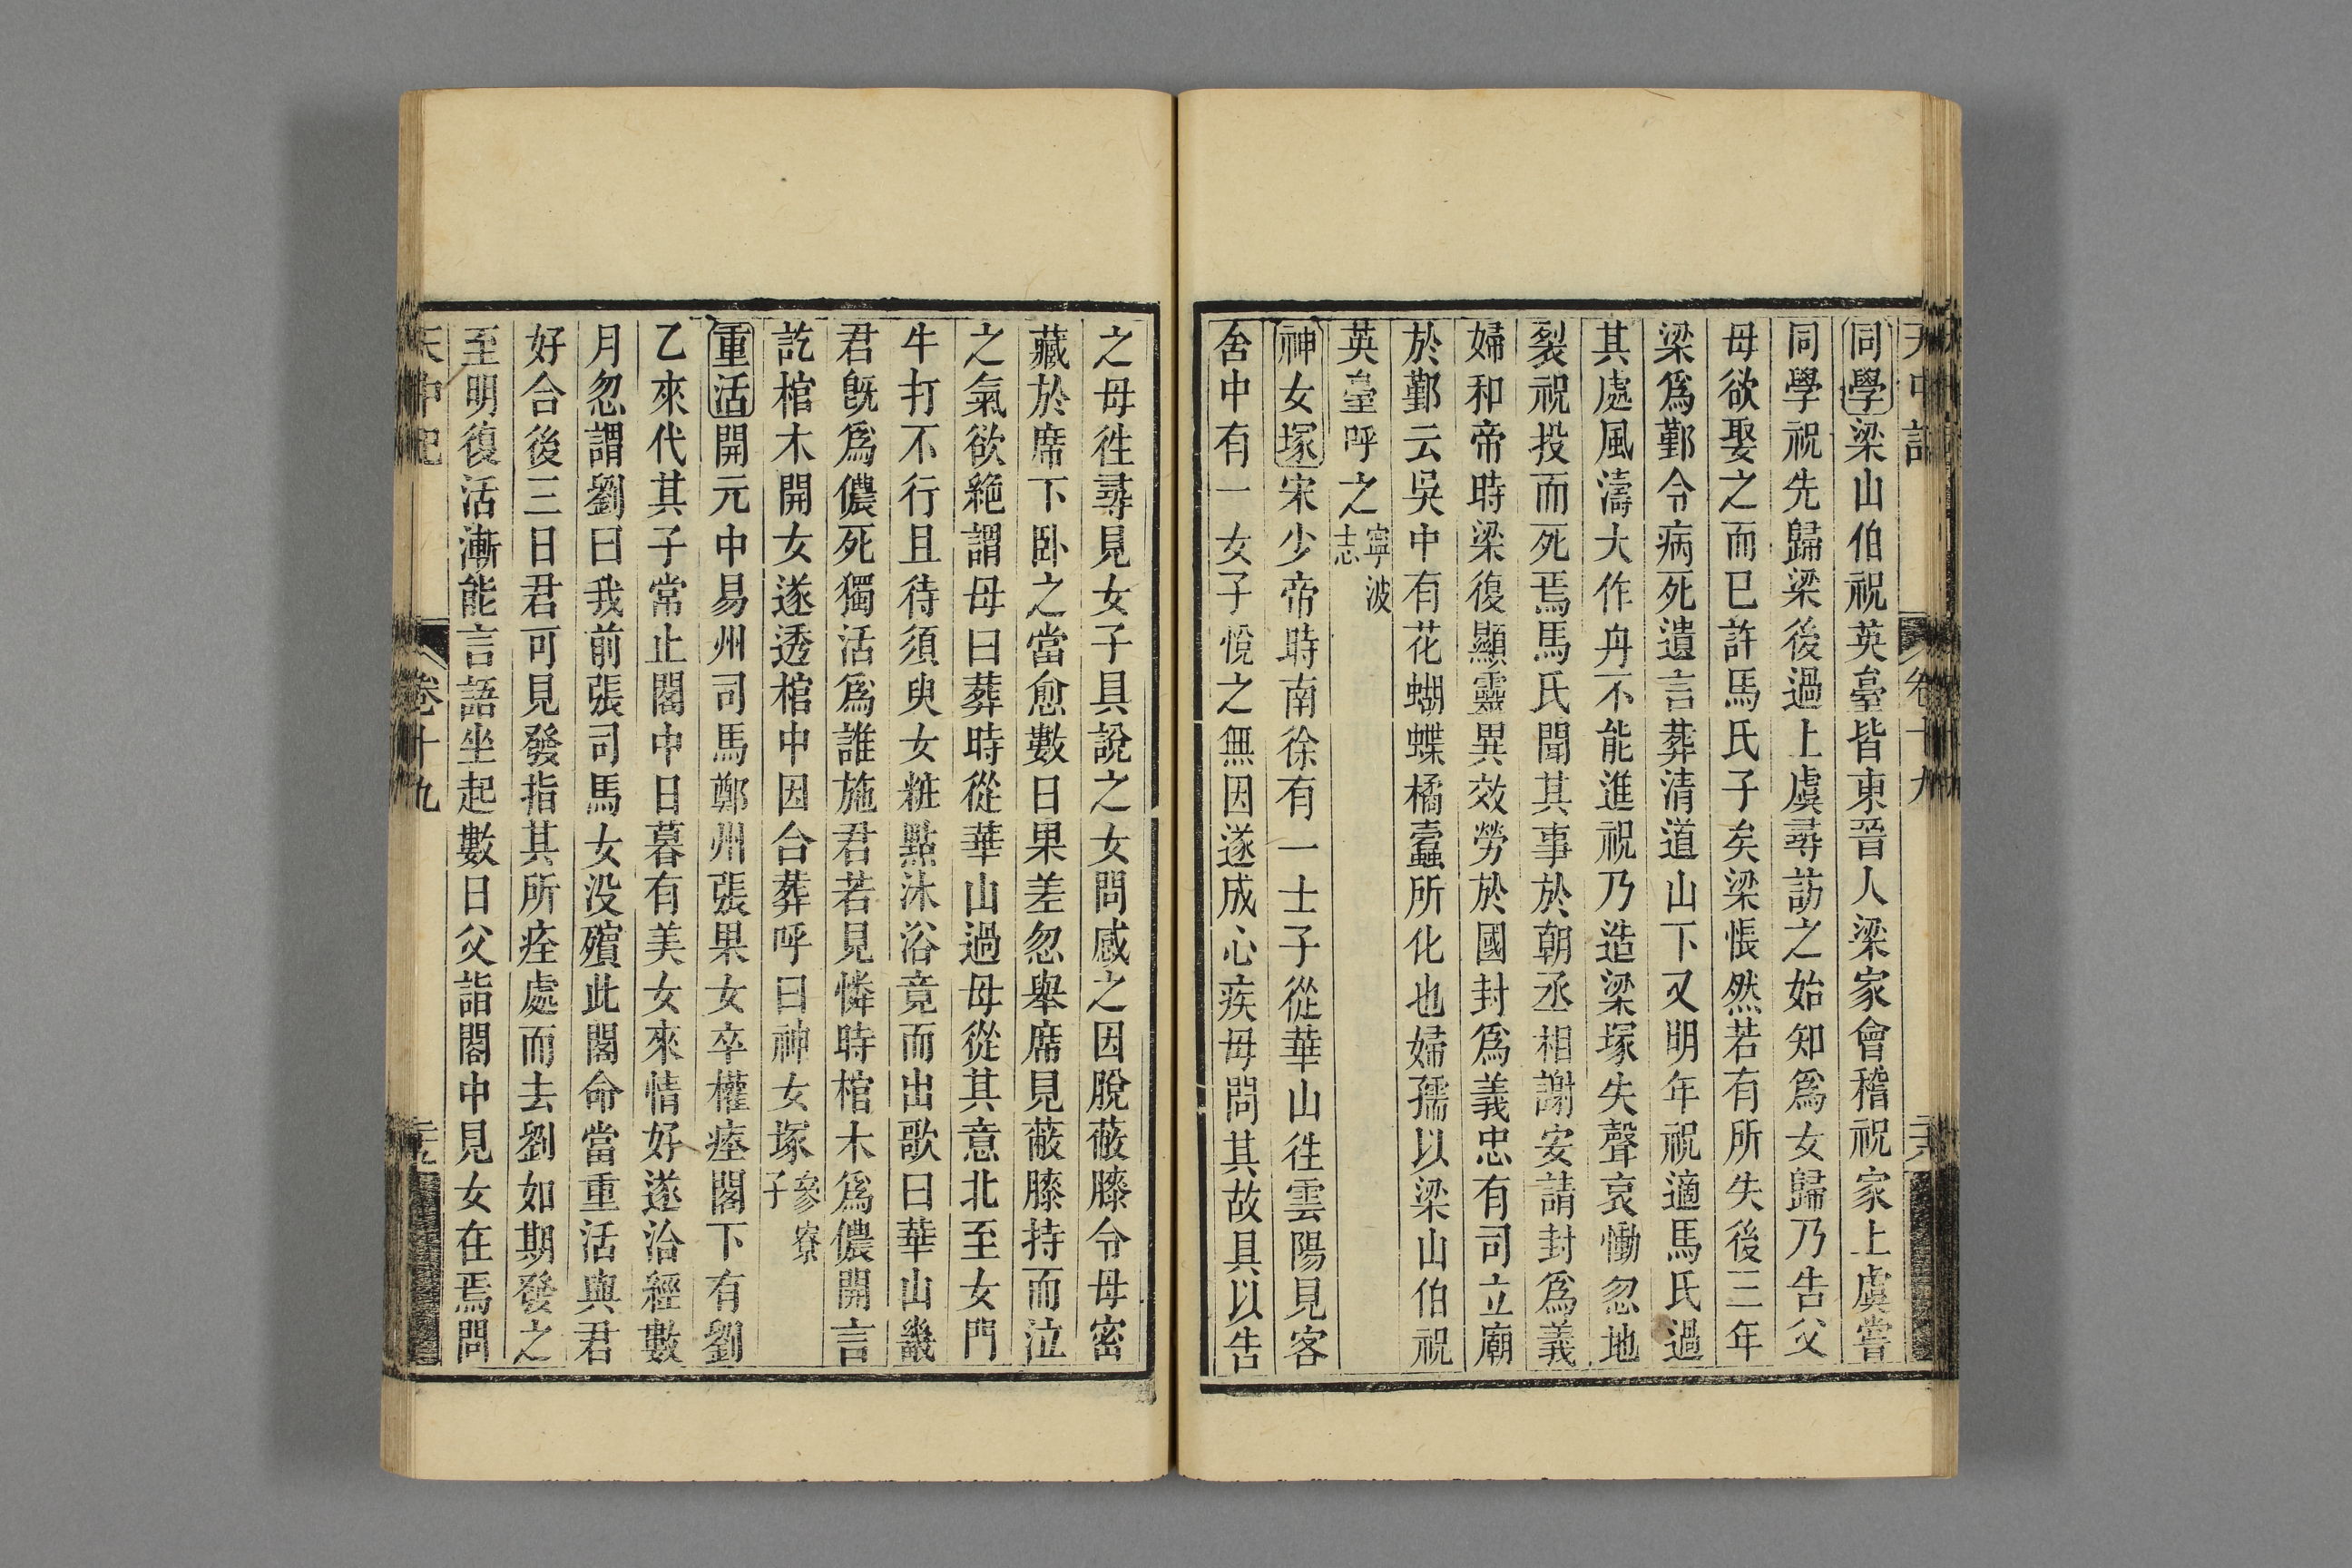 同學梁山伯祝英臺皆東晉人梁家會稽祝家上虞嘗
同學祝先歸梁後過上虞尋訪之始知爲女歸乃告父
母欲娶之而已許馬氏子矣梁悵然若有所失後三年
梁爲鄞令病死遺言葬清道山下又明年祝適馬氏過
其處風濤大作舟不能進祝乃造梁塚失聲哀慟忽地
裂祝投而死焉馬氏聞其事於朝丞相謝安請封爲義
婦和帝時梁復顯靈異效勞於國封爲義忠有司立廟
於鄞云吳中有花蝴蝶橘蠹所化也婦孺以梁山伯祝
英臺呼之寧波志
神女塚宋少帝時南徐有一士子從華山往雲陽見客
舍中有一女子悅之無因遂成心疾母問其故具以告
之母往尋見女子具說之女問感之因脫蔽膝令母密
藏於席下卧之當愈數日果差忽舉席見蔽膝持而泣
之氣欲絶謂母曰葬時從華山過母從其意北至女門
牛打不行且待須臾女粧點沐浴竟而出歌曰華山畿
君旣爲儂死獨活爲誰施君若見憐時棺木爲儂開言
訖棺木開女遂透棺中因合葬呼曰神女塚參寥子
重活開元中易州司馬鄭州張果女卒權瘞閣下有劉
乙來代其子常止閣中日暮有美女來情好遂洽經數
月忽謂劉曰我前張司馬女没殯此閣命當重活與君
好合後三日君可見發指其所痊處而去劉如期發之
至明復活漸能言語坐起數日父詣閣中見女在焉問
天中記 卷十九